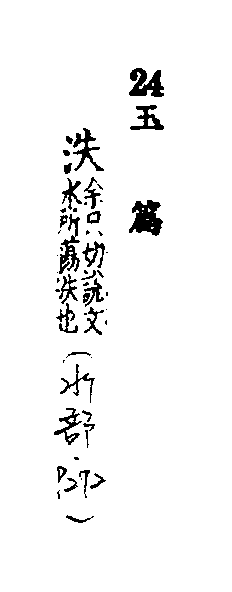 24
玉篇
泆余只切說文水所蕩泆也（水部 P.72）